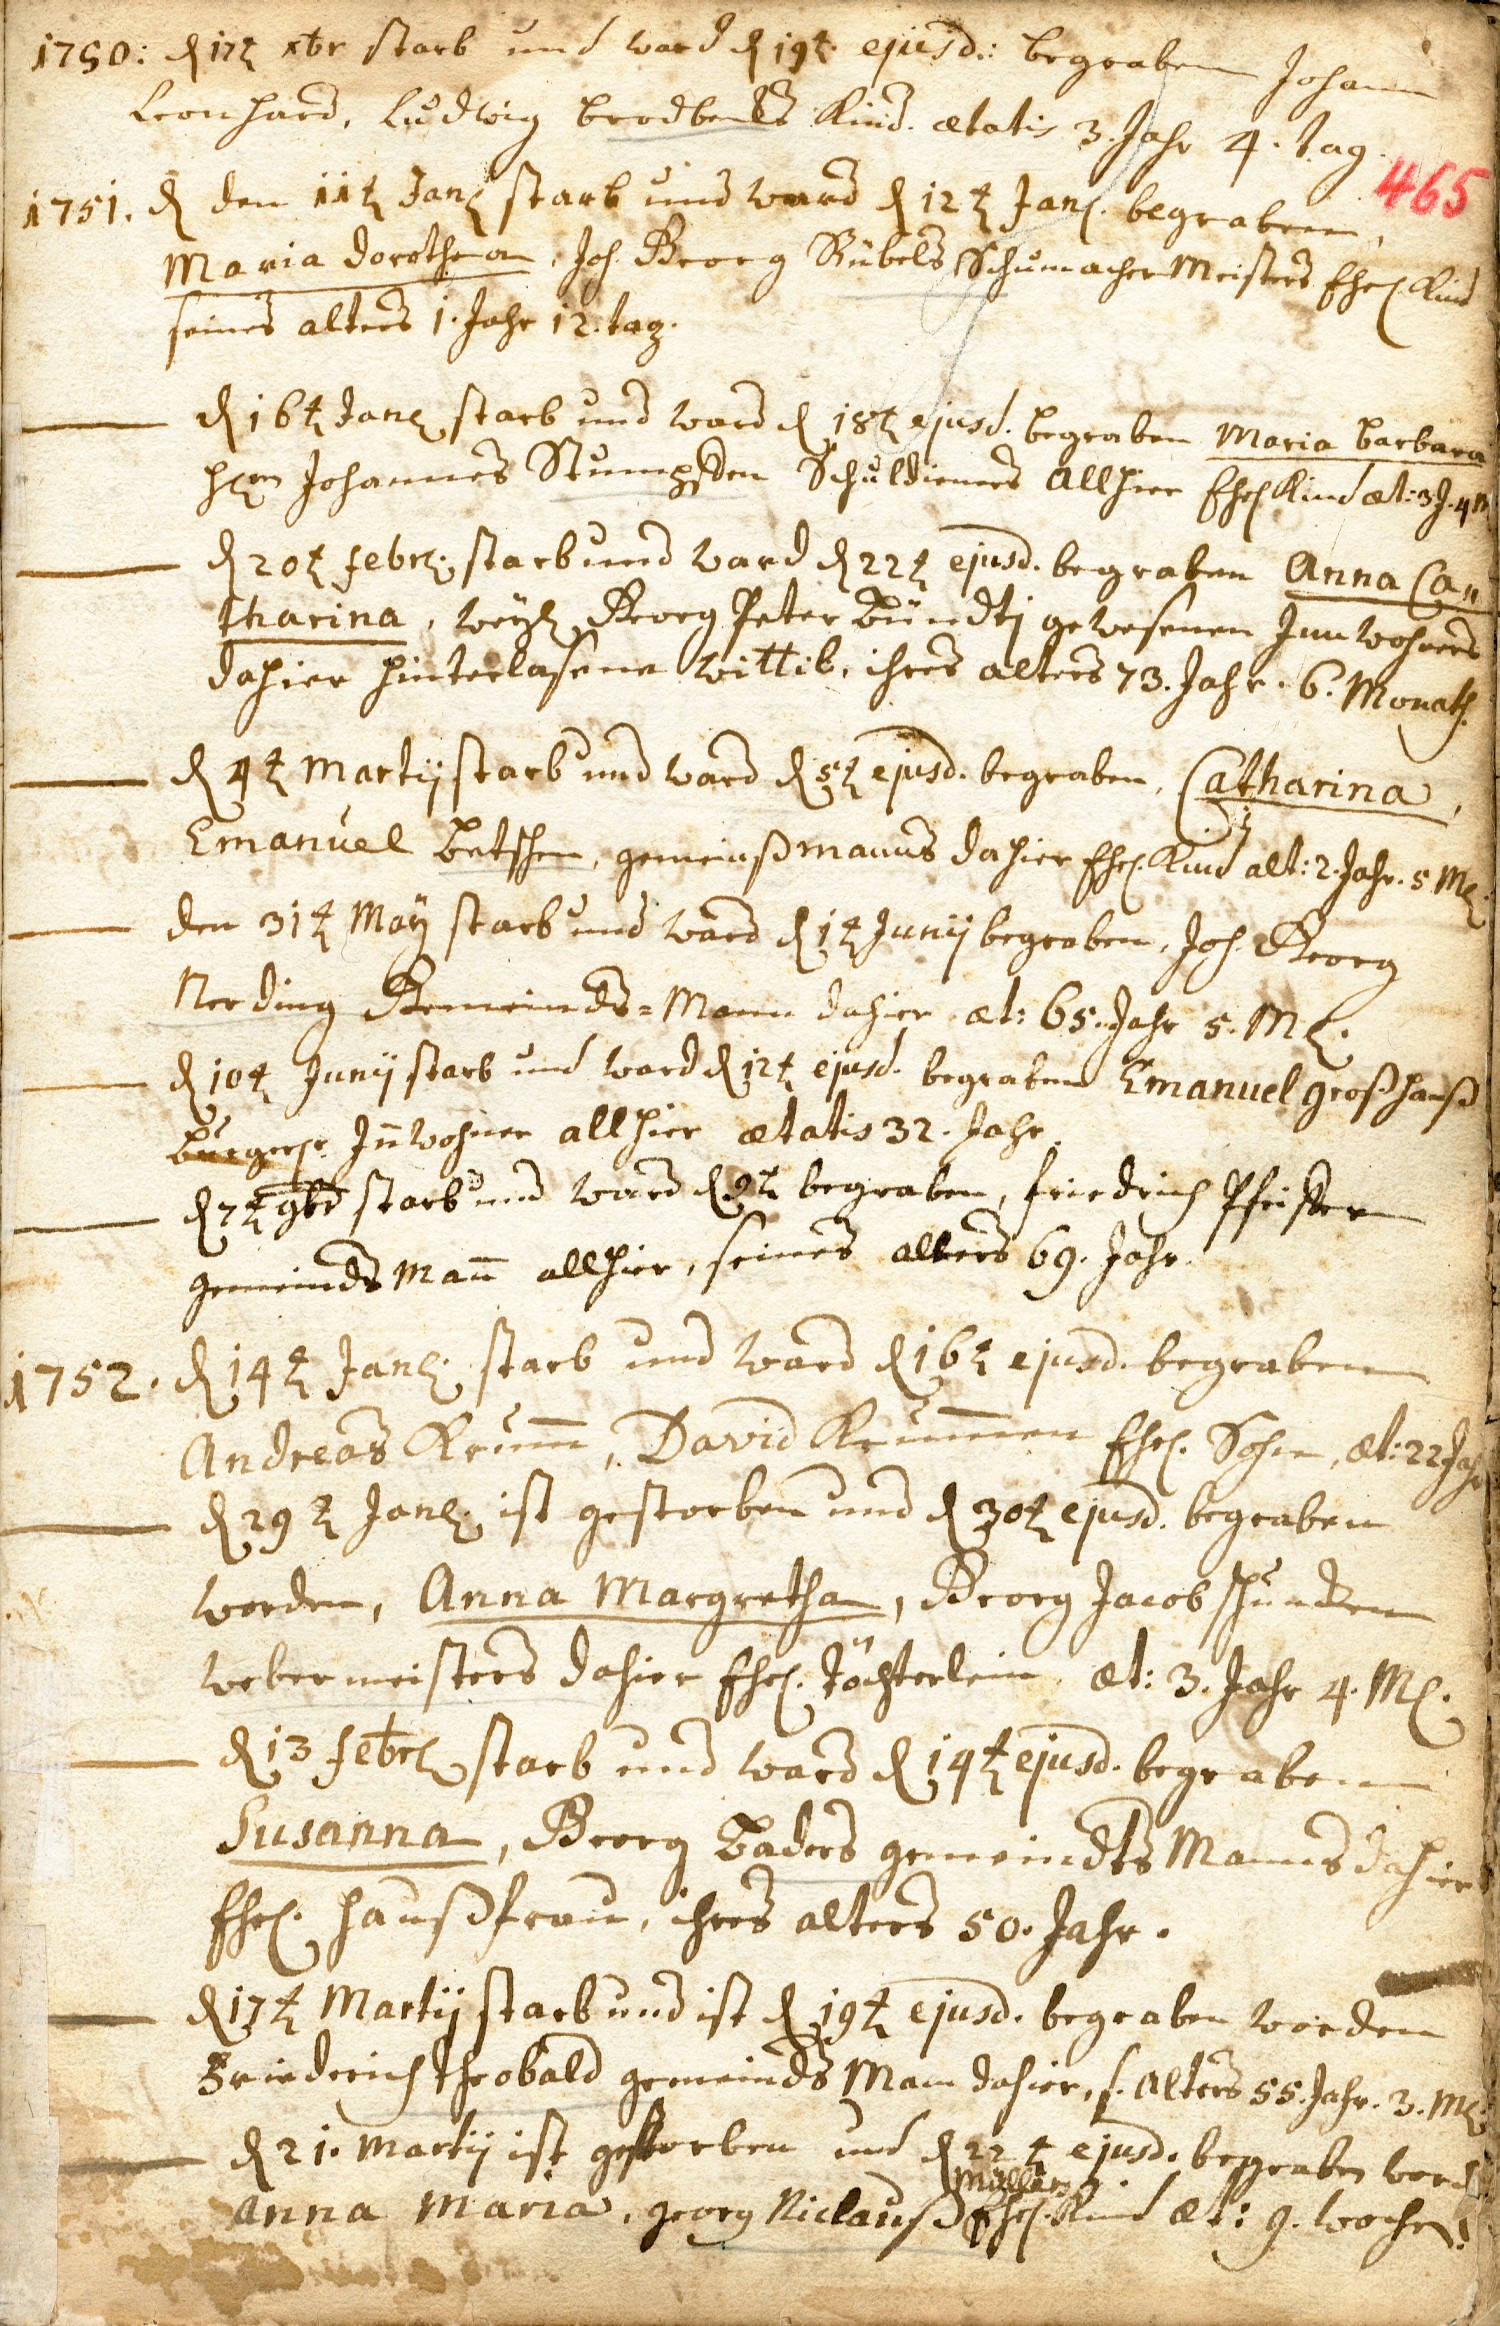 1750: d 17t xbr starb und ward d 19t. ejusd.: begraben Johann
Leonhard, Ludwig Brodbeckß Kind. ætatis 3. Jahr 4. tag.
465
1751. d den 11t Janl starb und ward d 12t Janl. begraben,
Maria Dorothea, Joh. Georg Rübels Schumacher Meisters Ehel. Kind
seines alters 1. Jahr 12. tag.
d 16t Janl starb und ward d 18t ejusd. begraben Maria Barbara
Johannes Stumpffen Schuldieners Allhier Ehel Kind æt: 3 J. 4 M
d 20t febrl. starb und ward d 22t ejusd. begraben Anna Ca„
tharina, weyl. Georg Peter Bündtj gewesenen Innwohners
dahier hinterlasene Wittib, ihres alters 73. Jahr. 6. Monath.
d 4t Martij starb und ward d 5t ejusd. begraben, Catharina,
Emanuel Betschen, gemeinßmanns dahier Ehel. Kind alt: 2. Jahr. 5 Ml.
den 31t May starb und ward d 1t Junij begraben, Joh. Georg
Nerding Gemeinds=Mann dahier æt: 65. Jahr 5. Ml.
d 10t Junij starb und ward d 12t ejusd. begraben Emanuel Großhanß
Burgerl. Inwohner allhier ætatis 32. Jahr.
d 7t 9br starb und ward d 9t begraben, Friedrich Pfister
gemeinds Mañ allhier, seines alters 69. Jahr.
1752. d 14t Janl. starb und ward d 16t ejusd. begraben
Andreas Krum̅, David Krum̅en Ehel. Sohn, æt: 22 Jahr
d 29t Janl. ist gestorben und d 30t ejusd. begraben
worden, Anna Margretha, Georg Jacob Schunken
webermeisters dahier Ehel. Töchterlein æt: 3. Jahr 4. Ml.
d 13 febrl starb und ward d 14t ejusd. begraben
Susanna, Georg Baders gemeindts Manns dahier
Ehel. Haußfrau, ihres alters 50. Jahr.
d 17t Martij starb und ist d 19t ejusd. begraben worden
Friederich Theobald gemeinds Mann dahier, s. Alters 55. Jahr. 3. Ml
d 21. Martij ist gestorben und d 22t ejusd. begraben word
Müllers
Anna Maria, Georg Niclauß Ehel. Kind æt: 9. wochen.